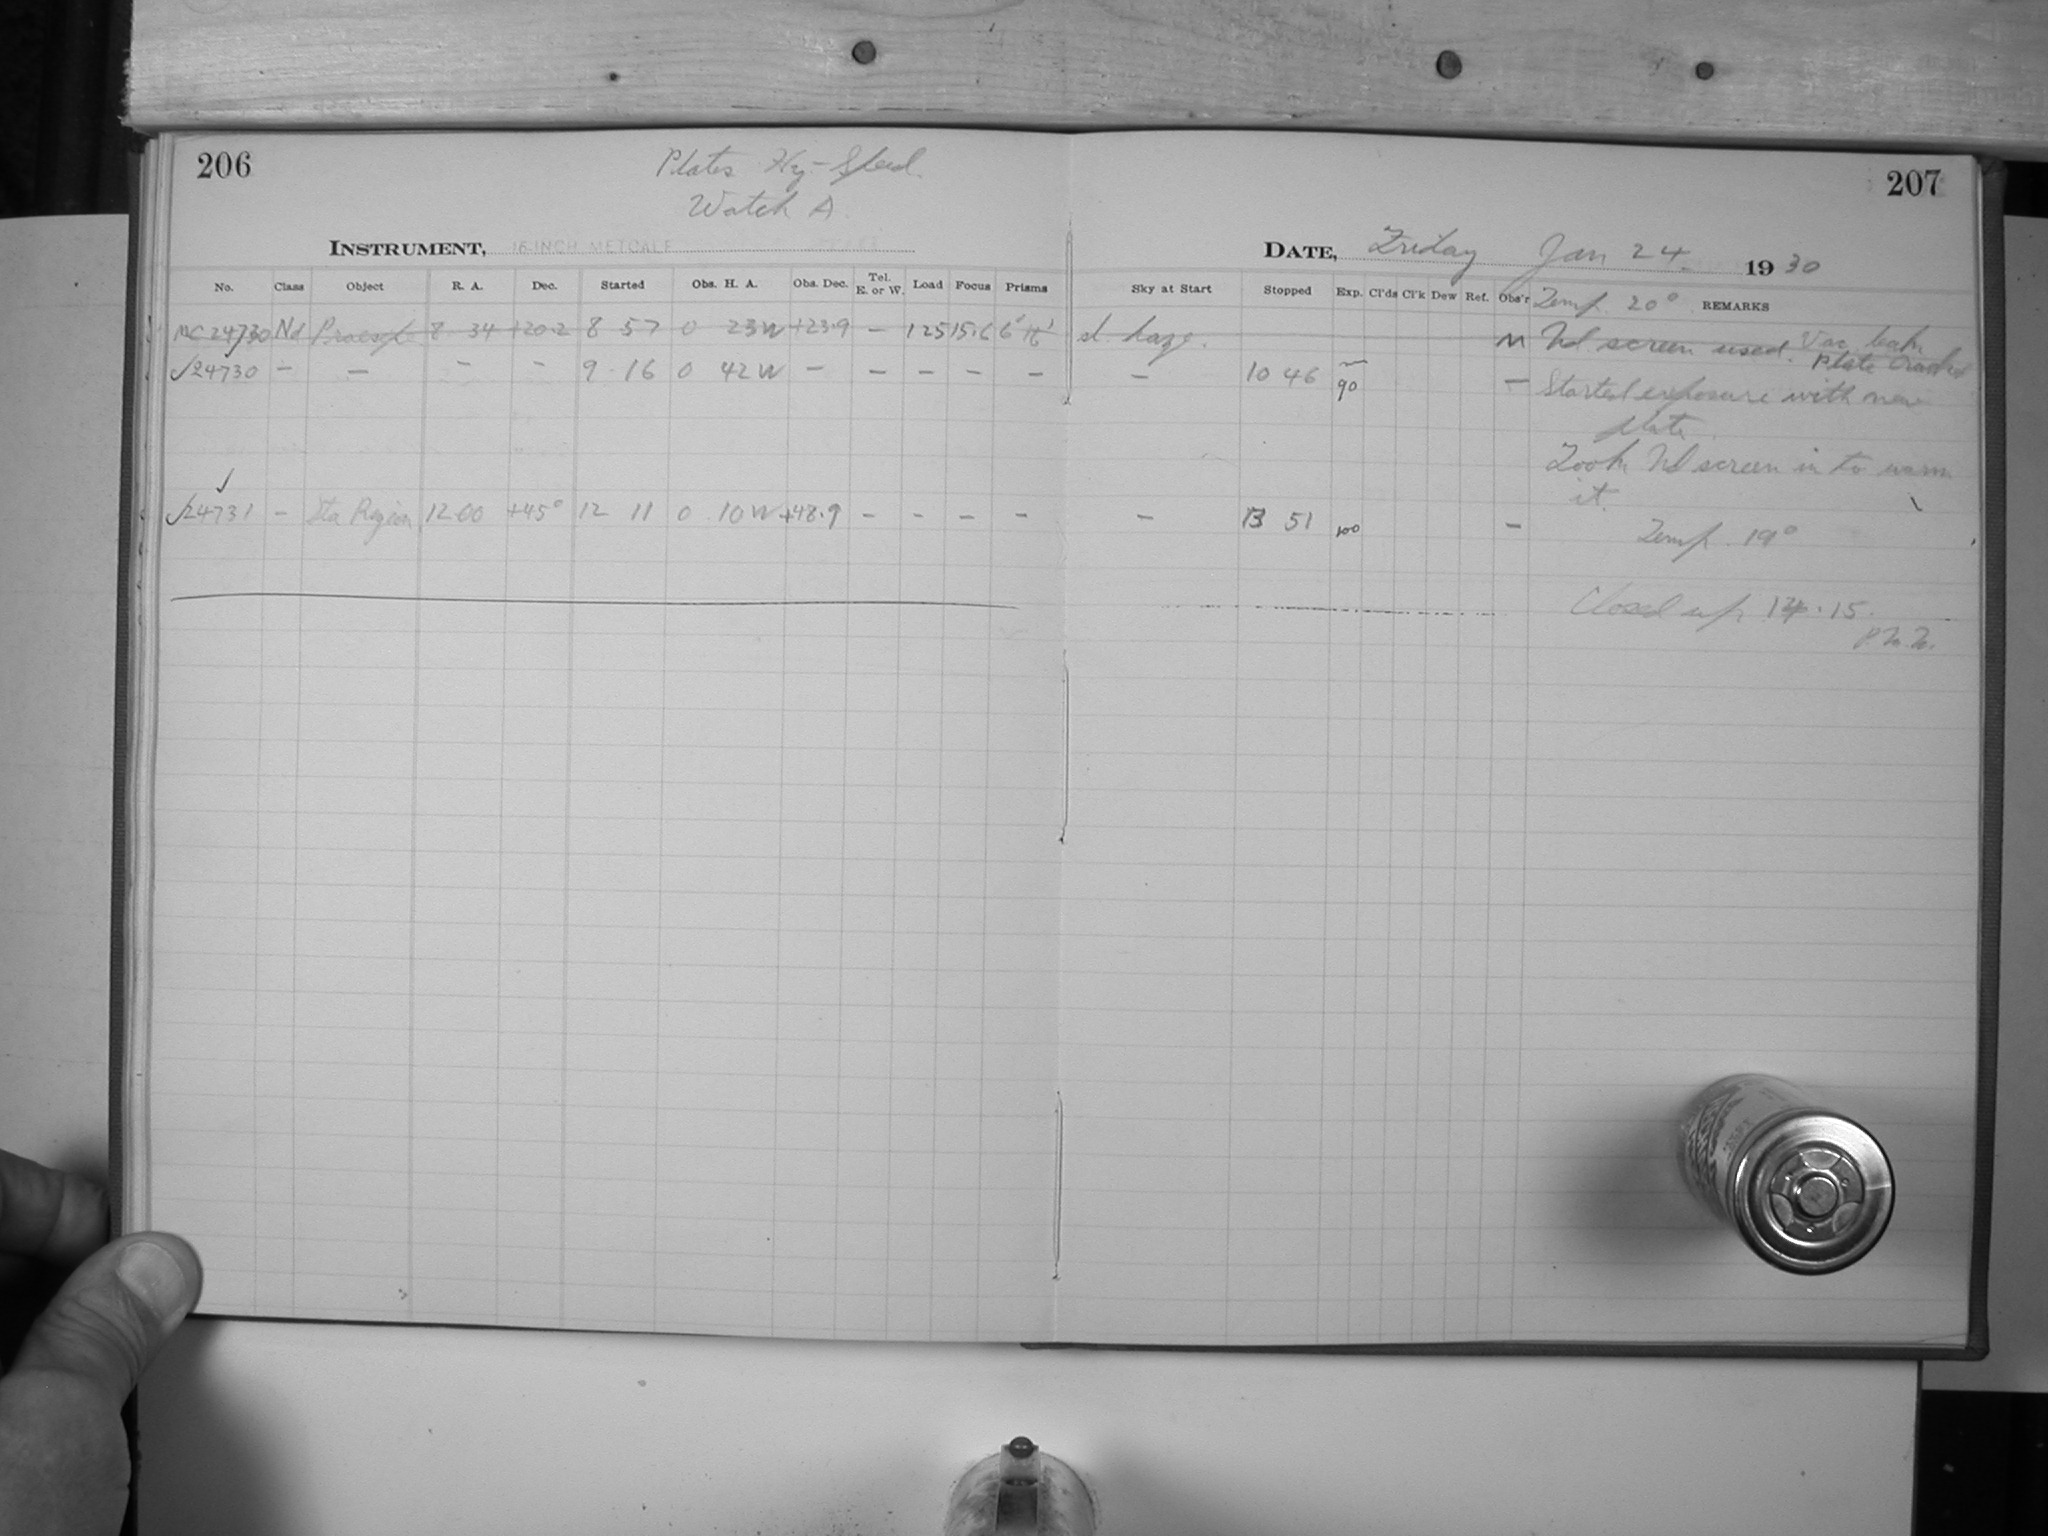 206
Plates Hy-Speed
Watch A
INSTRUMENT, 16-INCH METCALF
No. Class Object R. A. Dec. Started Obs. H. A. Obs. Dec. Tel. E. or W. Load Focus Prisms
MC 24730 Nd Praesepe 8 34 +20.2 8 57 0 23W +23.9 – 125 15.6
✓24730 – – – – 9 16 0 42W – – – – –
✓24731 – Region 12 00 +45° 12 11 0 10W +48.9 – – – –
207
DATE, Friday Jan 24 1930
Sky at Start Stopped Exp. Cl'ds Cl'k Dew Ref. Obs'r Temp. 20° REMARKS
sl. haze. M Nd screen used. Vac. leak
Plate Cracked
– 10 46 90 – Started exposure with new
plate.
Took Nd screen in to warm
it.
– 13 51 100 – Temp. 19°
Closed up 14.15.